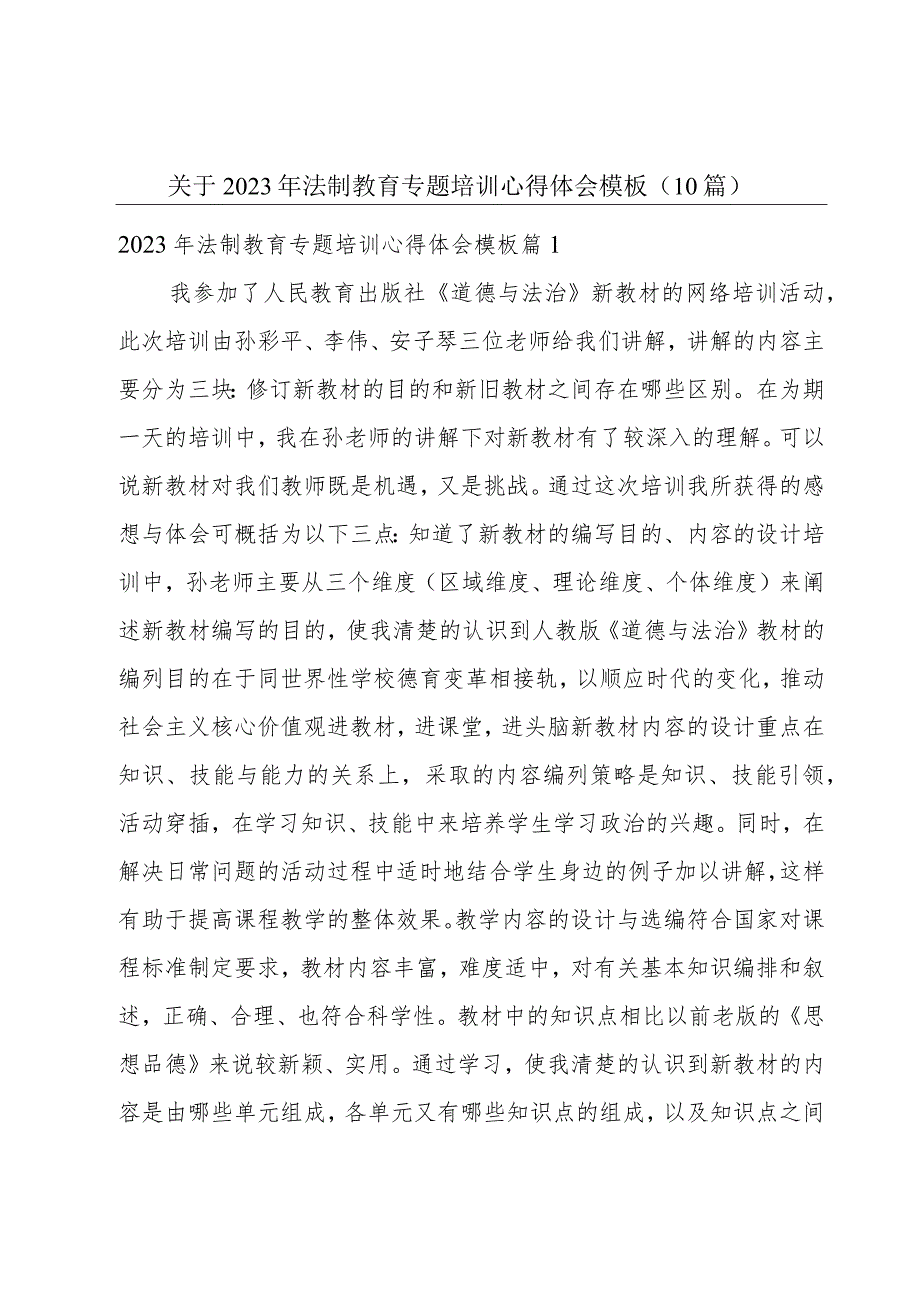 关于2023年法制教育专题培训心得体会模板（10篇）
2023年法制教育专题培训心得体会模板篇1
我参加了人民教育出版社《道德与法治》新教材的网络培训活动，
此次培训由孙彩平、李伟、安子琴三位老师给我们讲解，讲解的内容主
要分为三块：修订新教材的目的和新旧教材之间存在哪些区别。在为期
一天的培训中，我在孙老师的讲解下对新教材有了较深入的理解。可以
说新教材对我们教师既是机遇，又是挑战。通过这次培训我所获得的感
想与体会可概括为以下三点：知道了新教材的编写目的、内容的设计培
训中，孙老师主要从三个维度（区域维度、理论维度、个体维度）来阐
述新教材编写的目的，使我清楚的认识到人教版《道德与法治》教材的
编列目的在于同世界性学校德育变革相接轨，以顺应时代的变化，推动
社会主义核心价值观进教材，进课堂，进头脑新教材内容的设计重点在
知识、技能与能力的关系上，采取的内容编列策略是知识、技能引领，
活动穿插，在学习知识、技能中来培养学生学习政治的兴趣。同时，在
解决日常问题的活动过程中适时地结合学生身边的例子加以讲解，这样
有助于提高课程教学的整体效果。教学内容的设计与选编符合国家对课
程标准制定要求，教材内容丰富，难度适中，对有关基本知识编排和叙
述，正确、合理、也符合科学性。教材中的知识点相比以前老版的《思
想品德》来说较新颖、实用。通过学习，使我清楚的认识到新教材的内
容是由哪些单元组成，各单元又有哪些知识点的组成，以及知识点之间